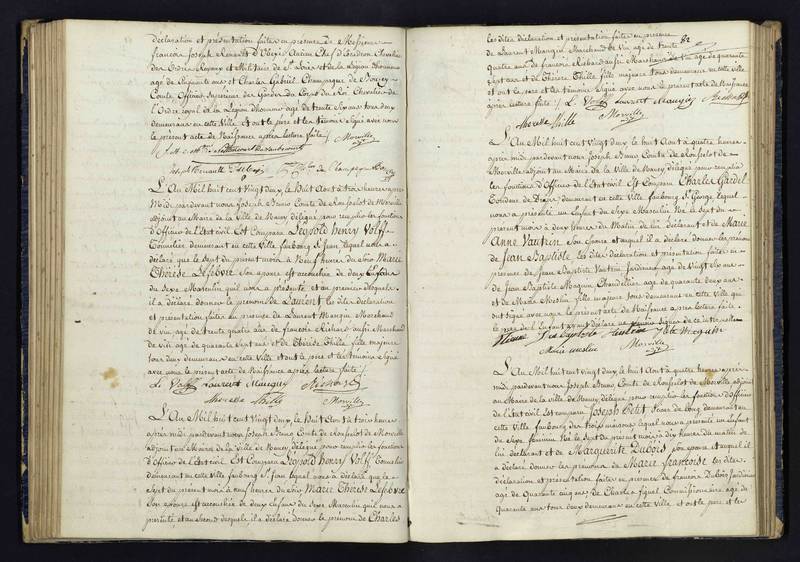 déclaration et présentation faites en présence de Messieurs
françois Joseph Ancien Chef d'Escadron Chevalier
des Ordres Royaux et Militaire de St Louis et de la Légion d'honneur
agé de Cinquante ans et Charles Gabriel Champagne de Bouzey
Comte Officier Supérieur des Gardes du Corps du Roi Chevalier de
l'Ordre royal de la Légion d'honneur agé de trente Six ans tous deux
demeurans en cette Ville et ont le père et les témoins Signé avec nous
le présent acte de Naissance après lecture faite
Morville
de Champagne Bouzey
L'An Mil huit cent Vingt deux, le Huit Aout à trois heures après
Midi pardevant nous Joseph Bruno Comte de Rousselot de Morville
adjoint au Maire de la Ville de Nancy délégué pour remplir les fonctions
d'Officier de l'Etat civil. Est Comparu Léopold henry Volff
Tonnelier demeurant en cette Ville faubourg St Jean lequel nous a
déclaré que le Sept du présent mois à Neuf heures du Soir Marie
Thérèse Lefebvre Son épouse est accouchée de deux Enfans
du Sexe Masculin qu'il nous a présenté, et au premier desquels
il a déclaré donner le prénom de Laurent les dites déclaration
et présentation faites en présence de Laurent Mangin Marchand
de vin agé de trente quatre ans de françois Richard aussi Marchand
de vin agé de quarante Sept ans et de Thérèse Thille fille majeure
tous deux demeurans en cette Ville et ont le père et les témoins Signé
avec nous le présent acte de Naissance après lecture faite
L. Volff Laurent Mangin Richard
Theresse thille Morville
L'An Mil huit cent Vingt deux, le Huit Aout à trois heures
après midi pardevant nous Joseph Bruno Comte de Rousselot de Morville
adjoint au Maire de la Ville de Nancy délégué pour remplir les fonctions
d'Officier de l'Etat civil. Est Comparu Léopold henry Volff Tonnelier
demeurant en cette Ville faubourg St Jean lequel nous a déclaré que le
Sept du présent mois à neuf heures du Soir Marie Thérèse Lefebvre
Son épouse est accouchée de deux enfans du Sexe Masculin qu'il nous a
présenté, et au second desquels il a déclaré donner le prénom de Charles
82
les dites déclaration et présentation faites en présence
de Laurent Mangin Marchand de Vin agé de trente
quatre ans de françois Richard aussi Marchand de Vin agé de quarante
Sept ans et de Thérèse Thille, fille majeure tous demeurans en cette Ville
et ont le père et les témoins Signé avec nous le présent acte de Naissance
après lecture faite L. Volff Laurent Mangin Richard
Theressa thille Morville
L'An Mil huit cent Vingt deux, le huit Aout à quatre heures
après midi, pardevant nous Joseph Bruno Comte de Rousselot de
Morville adjoint au Maire de la Ville de Nancy délégué pour remplir
les fonctions d'Officier de l'Etat civil. Est Comparu Charles Gardel
Tondeur de Draps demeurant en cette Ville faubourg St George, lequel
nous a présenté un Enfant du Sexe Masculin Né le Sept du
présent mois à deux heures du Matin de lui déclarant et de Marie
Anne Vautrin Son Epouse et auquel il a déclaré donner les prénoms
de Jean Baptiste les dites déclaration et présentation faites en
présence de Jean Baptiste Vautrin Jardinier agé de vingt Six ans
de Jean Baptiste Maguin Chandellier agé de quarante deux ans
et de Marie fille majeure tous demeurans en cette Ville qui
ont Signé avec nous le présent acte de Naissance après lecture faite
le père de l'Enfant ayant déclaré ne pouvoir signer de ce interpellé
Jean baptiste Vautrin Maguin
Marie Morville
L'An Mil huit cent Vingt deux, le huit Aout à quatre heures après
midi pardevant nous Joseph Bruno Comte de Rousselot de Morville adjoint
au Maire de la ville de Nancy, délégué pour remplir les fonctions d'officier
de l'Etat civil. Est comparu Joseph Petit Scieur de long demeurant en
cette Ville faubourg des trois maisons lequel nous a présenté un Enfant
du Sexe féminin Né le Sept du présent mois à dix heures du matin de
lui déclarant et de Marguerite Dubois son épouse et auquel il
a déclaré donner les prénoms de Marie françoise les dites
déclaration et présentation faites en présence de françois Dubois Jardinier
agé de Quarante cinq ans de Charles Commissionnaire agé de
Quarante ans tous deux demeurans en cette Ville et ont le père et les